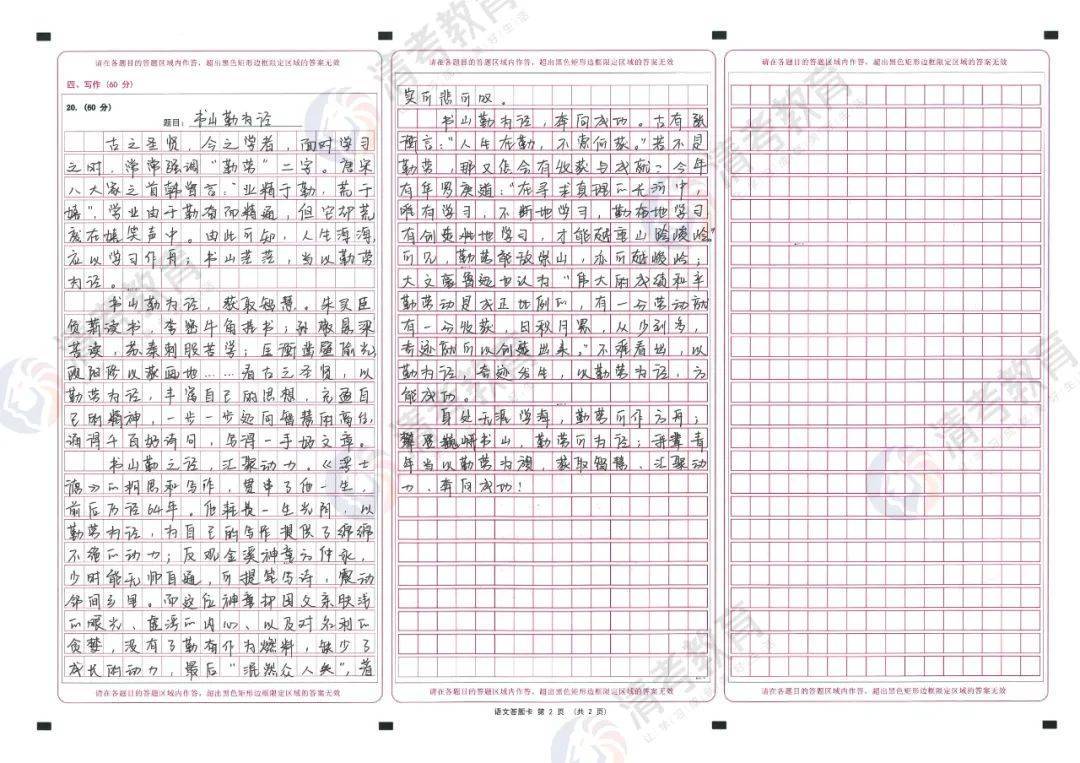 请在各题目的答题区域内作答，超出黑色矩形边框限定区域的答案无效
四、写作（60 分）
20.（60 分）
题目：书山勤为径
古之圣贤，今之学者，面对学习
之时，常常强调“勤劳”二字。唐宋
八大家之首韩愈言：“业精于勤，荒于
嬉”，学业由于勤奋而精通，但它却荒
废在嬉笑声中。由此可知，人生海海，
应以学习作舟；书山茫茫，当以勤劳
为径。
书山勤为径，获取智慧。朱买臣
负薪读书，李密牛角挂书；孙敬悬梁
苦读，苏秦刺股苦学；匡衡凿壁偷光，
欧阳修以荻画地……看古之圣贤，以
勤劳为径，丰富自己的思想，充通自
己的精神，一步一步迈向智慧的高位，
诵得千百好诗句，写得一手好文章。
书山勤之径，汇聚动力。《浮士
德》的构思和写作，贯串了他一生，
前后历经64年。他耗长一生光阴，以
勤劳为径，为自己的写作提供了绵绵
不绝的动力；反观金溪神童方仲永，
少时能无师自通，可提笔写诗，震动
邻间乡里。而这位神童却因父亲肤浅
的眼光、虚浮的内心、以及对名利的
贪婪，没有了勤奋作为燃料，缺少了
成长的动力，最后“泯然众人矣”，着
请在各题目的答题区域内作答，超出黑色矩形边框限定区域的答案无效
请在各题目的答题区域内作答，超出黑色矩形边框限定区域的答案无效
实可悲可叹。
书山勤为径，奔向成功。古有张
衡言：“人生在勤，不索何获。”若不是
勤劳，那又怎会有收获与成就？今年
有年男庚道：“在寻求真理的长河中，
唯有学习，不断地学习，勤奋地学习，
有创造性地学习，才能越重山跨峻岭。”
可见，勤劳能放柴山，亦可越峻岭；
大文豪鲁迅也认为“伟大的成绩和辛
勤劳动是成正比例的，有一分劳动就
有一分收获，日积月累，从少到多，
奇迹就可以创造出来。”不难看出，以
勤为径，奇迹发生，以勤劳为径，方
能成功。
身处无涯学海，勤劳可作方舟；
攀登巍峨书山，勤劳可为径；吾辈青
年当以勤劳为旗，获取智慧、汇聚动
力、奔向成功！
请在各题目的答题区域内作答，超出黑色矩形边框限定区域的答案无效
语文答题卡 第 2 页 （共 2 页）
请在各题目的答题区域内作答，超出黑色矩形边框限定区域的答案无效
请在各题目的答题区域内作答，超出黑色矩形边框限定区域的答案无效
清考教育
让学习成就美好生活